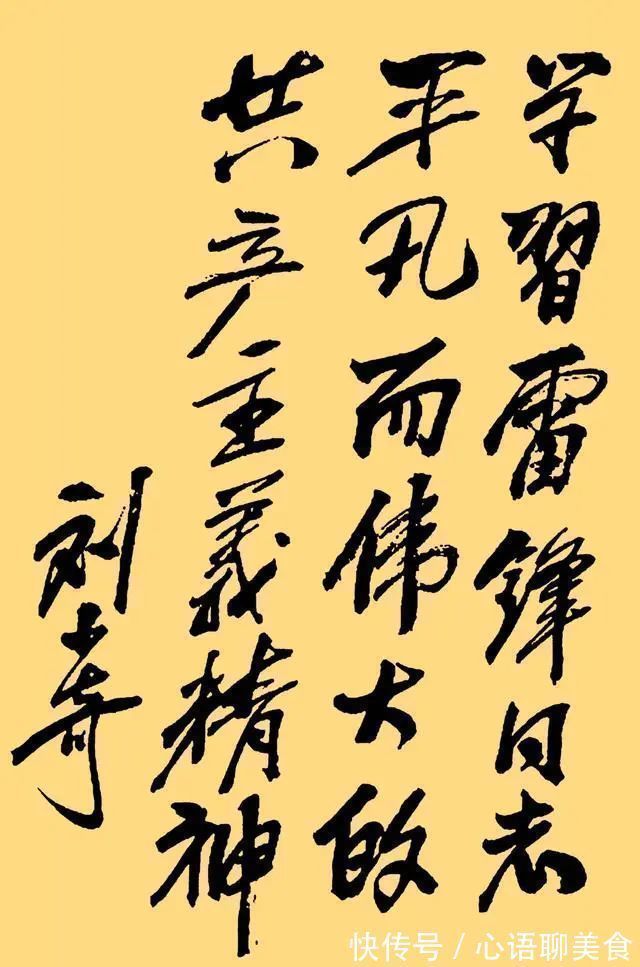 学習雷锋同志
平凡而伟大的
共产主義精神
刘少奇
快传号/心语聊美食